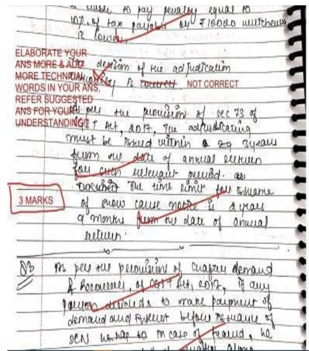 liable to pay penalty equal to
10% of tax payable or ₹10000 whichever
is lower.
ELABORATE YOUR
ANS MORE & ADD
MORE TECHNICAL
WORDS IN YOUR ANS.
REFER SUGGESTED
ANS FOR YOUR
UNDERSTANDING
decision of the adjudication
is correct NOT CORRECT
As per the provision of sec 73 of
Act, 2017, The adjudicating
must be issued within 3 years
from due date of annual return
for such relevant period.
The time limit for issuance
3 MARKS
of show cause notice is 2 years
9 months from due date of annual
return.
As per the provision of Chapter demand
& Recoveries, of CGST Act, 2017, if any
person decides to make payment of
demand and interest before issuance of
SCN in case of fraud, he